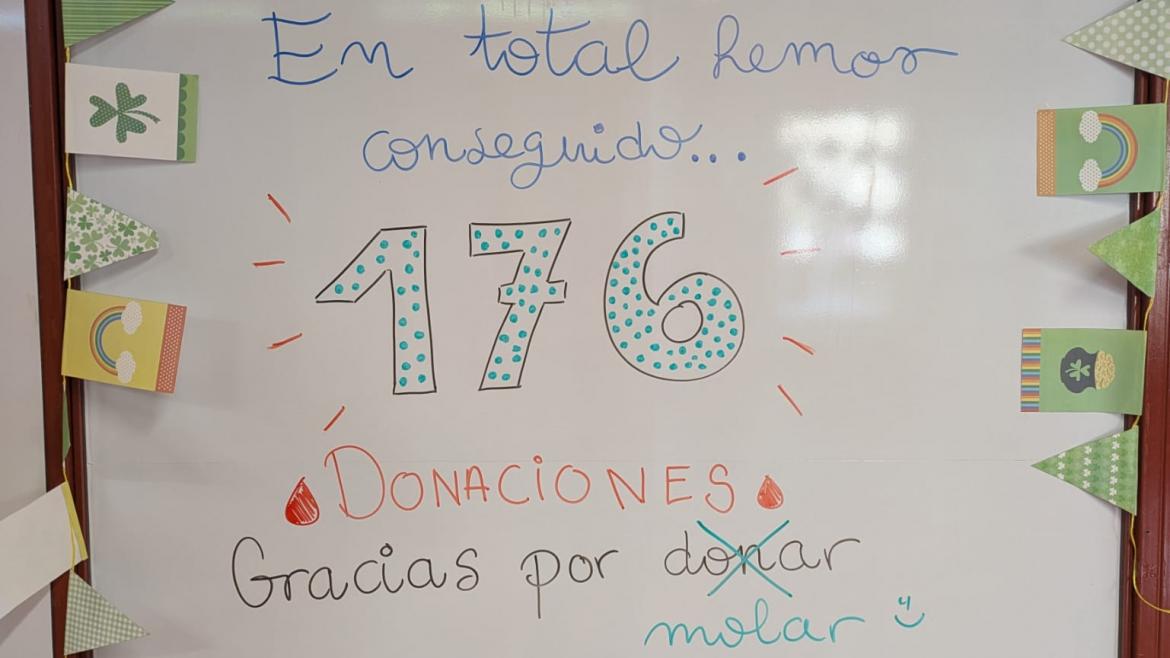 En total hemos
conseguido...
176
DONACIONES
Gracias por donar
molar